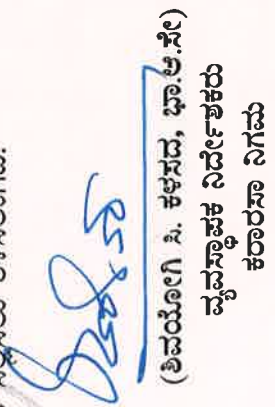 (ಶಿವಯೋಗಿ ಸಿ. ಕಳಸದ, ಭಾ.ಆ.ಸೇ)
ವ್ಯವಸ್ಥಾಪಕ ನಿರ್ದೇಶಕರು
ಕರಾರಸಾ ನಿಗಮ